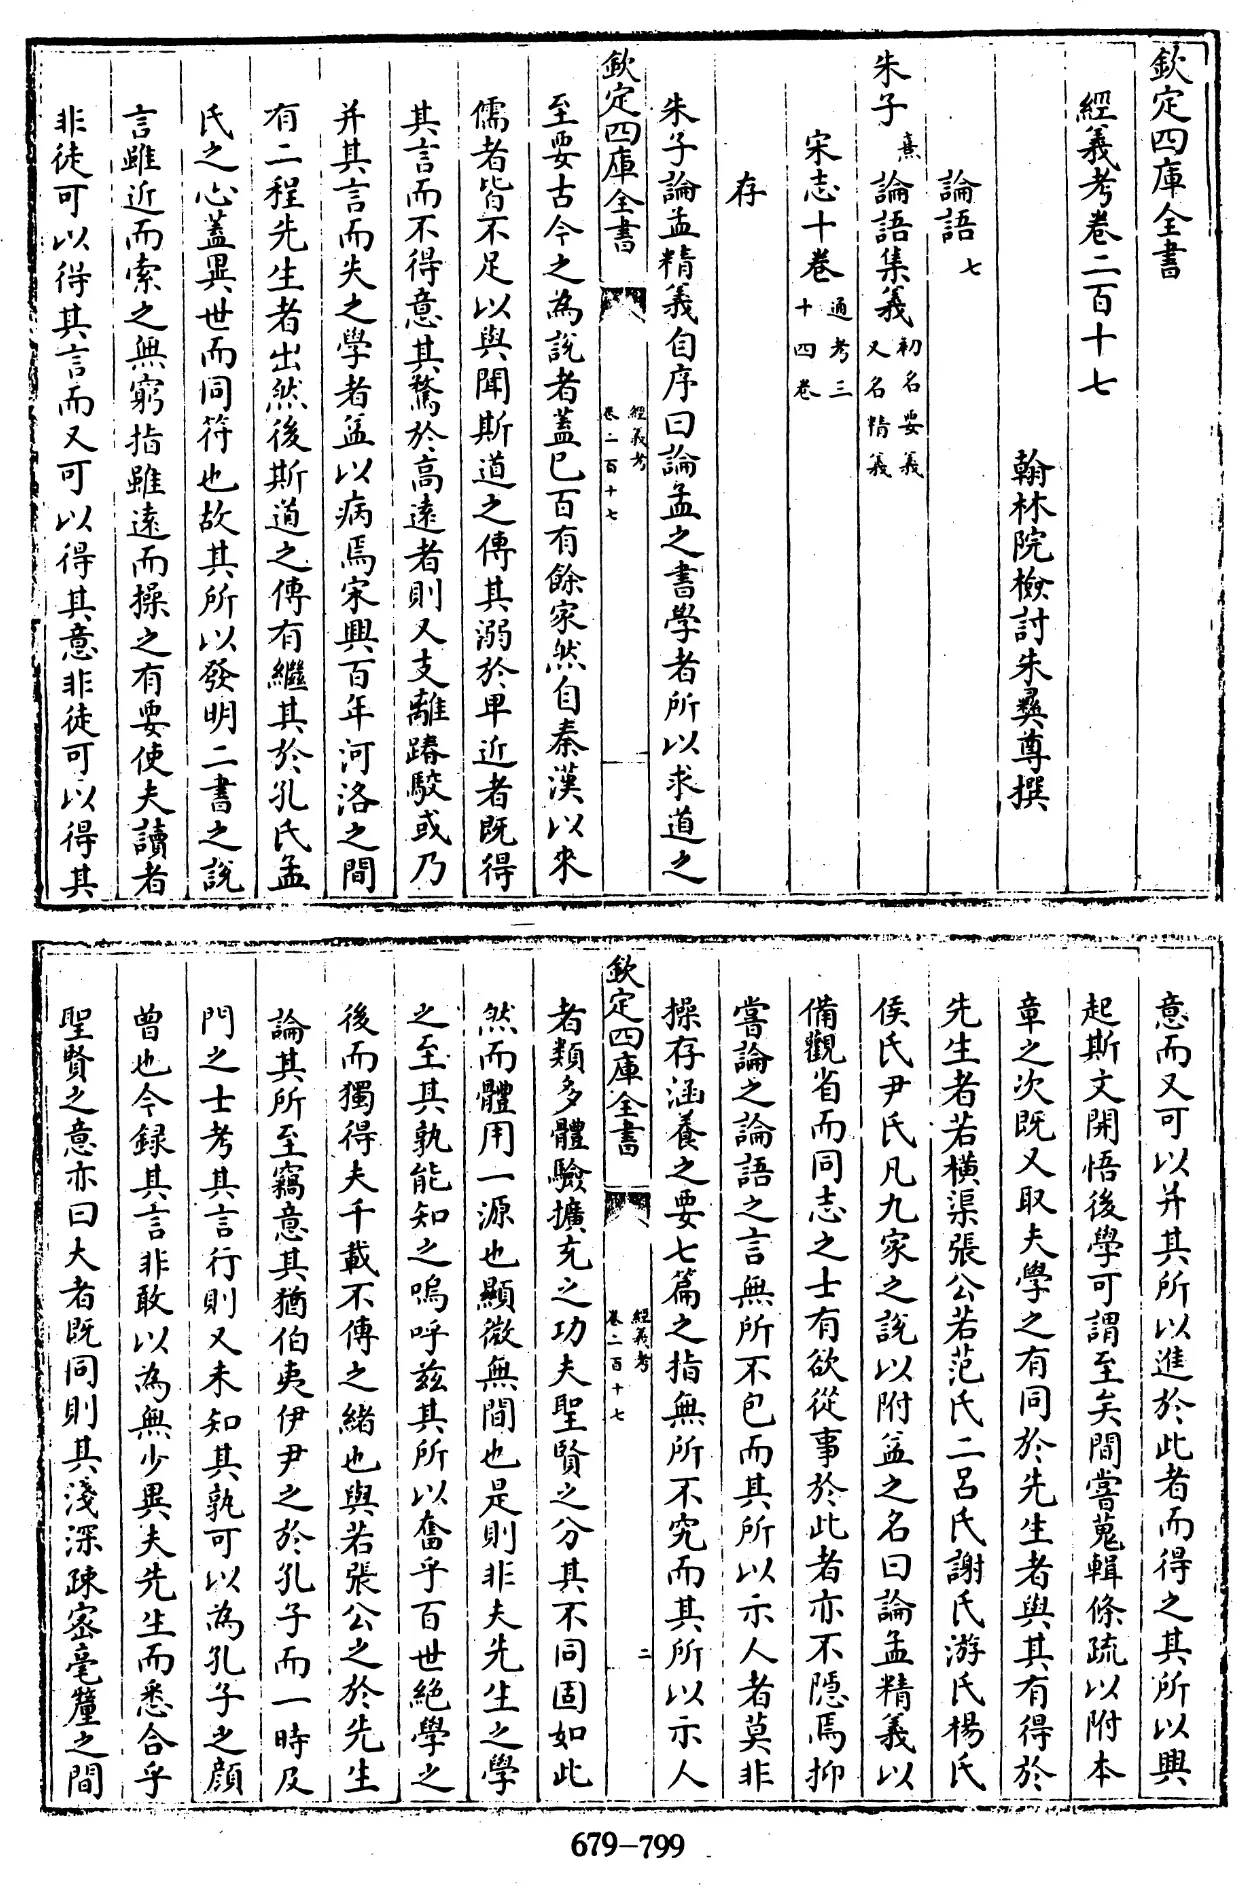 欽定四庫全書
經義考卷二百十七
翰林院檢討朱彝尊撰
論語七
朱子熹論語集義初名要義又名精義
宋志十卷通考三十四卷
存
朱子論孟精義自序曰論孟之書學者所以求道之
欽定四庫全書
經義考
卷二百十七
一
至要古今之為說者蓋已百有餘家然自秦漢以來
儒者皆不足以與聞斯道之傳其溺於卑近者既得
其言而不得意其騖於高遠者則又支離踳駮或乃
并其言而失之學者益以病焉宋興百年河洛之間
有二程先生者出然後斯道之傳有繼其於孔氏孟
氏之心蓋異世而同符也故其所以發明二書之說
言雖近而索之無窮指雖遠而操之有要使夫讀者
非徒可以得其言而又可以得其意非徒可以得其
意而又可以并其所以進於此者而得之其所以興
起斯文開悟後學可謂至矣間嘗蒐輯條疏以附本
章之次既又取夫學之有同於先生者與其有得於
先生者若橫渠張公若范氏二呂氏謝氏游氏楊氏
侯氏尹氏凡九家之說以附益之名曰論孟精義以
備觀省而同志之士有欲從事於此者亦不隱焉抑
嘗論之論語之言無所不包而其所以示人者莫非
操存涵養之要七篇之指無所不究而其所以示人
欽定四庫全書
經義考
卷二百十七
二
者類多體驗擴充之功夫聖賢之分其不同固如此
然而體用一源也顯微無間也是則非夫先生之學
之至其孰能知之嗚呼兹其所以奮乎百世絕學之
後而獨得夫千載不傳之緒也與若張公之於先生
論其所至竊意其猶伯夷伊尹之於孔子而一時及
門之士考其言行則又未知其孰可以為孔子之顔
曾也今録其言非敢以為無少異夫先生而悉合乎
聖賢之意亦曰大者既同則其淺深疎密毫釐之間
679-799